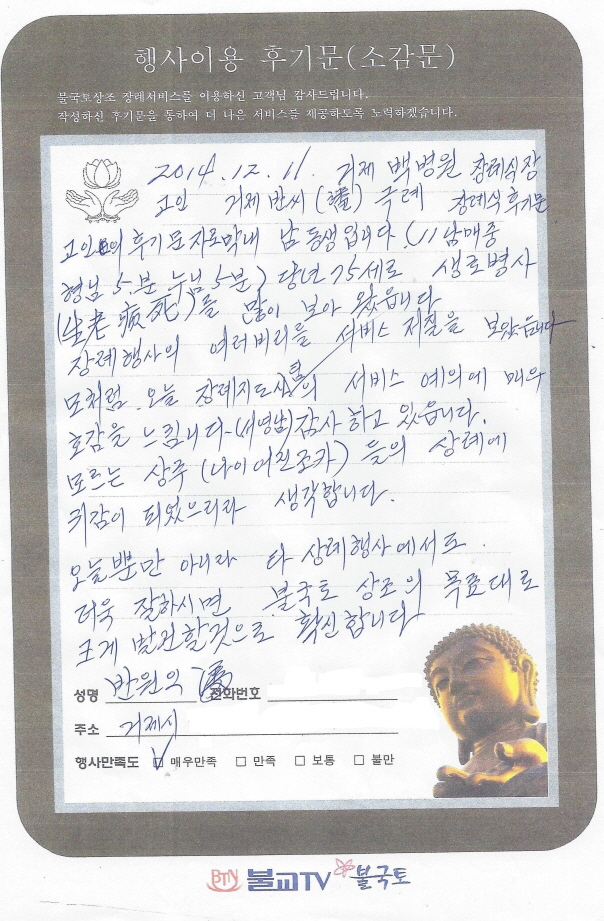 행사이용 후기문(소감문)
불국토상조 장례서비스를 이용하신 고객님 감사드립니다.
작성하신 후기문을 통하여 더 나은 서비스를 제공하도록 노력하겠습니다.
2014.12.11. 거제 백병원 장례식장
고인 거제 반씨 ( ) 극례 장례식 후기문
고인의 후기문자로막내 남동생입니다 (11남매중
형님 5분 누님 5분) 당년 75세로 생로병사
(生老病死)를 많이 보아 왔읍니다
장례행사의 여러버리를 서비스 저질을 보았읍니다
모처럼 오늘 장례지도사님의 서비스 예의에 매우
호감을 느낍니다-(서영남) 감사하고 있읍니다.
모르는 상주 (나이어린조카) 들의 상례에
귀감이 되었으리라 생각합니다.
오늘뿐만 아니라 타 상례행사에서도.
더욱 잘하시면 불국토 상조의 목표대로
크게 발전할것으로 확신합니다
성명 반원의 전화번호
주소 거제시
행사만족도 ☑ 매우만족 □ 만족 □ 보통 □ 불만
BTN 불교TV 불국토